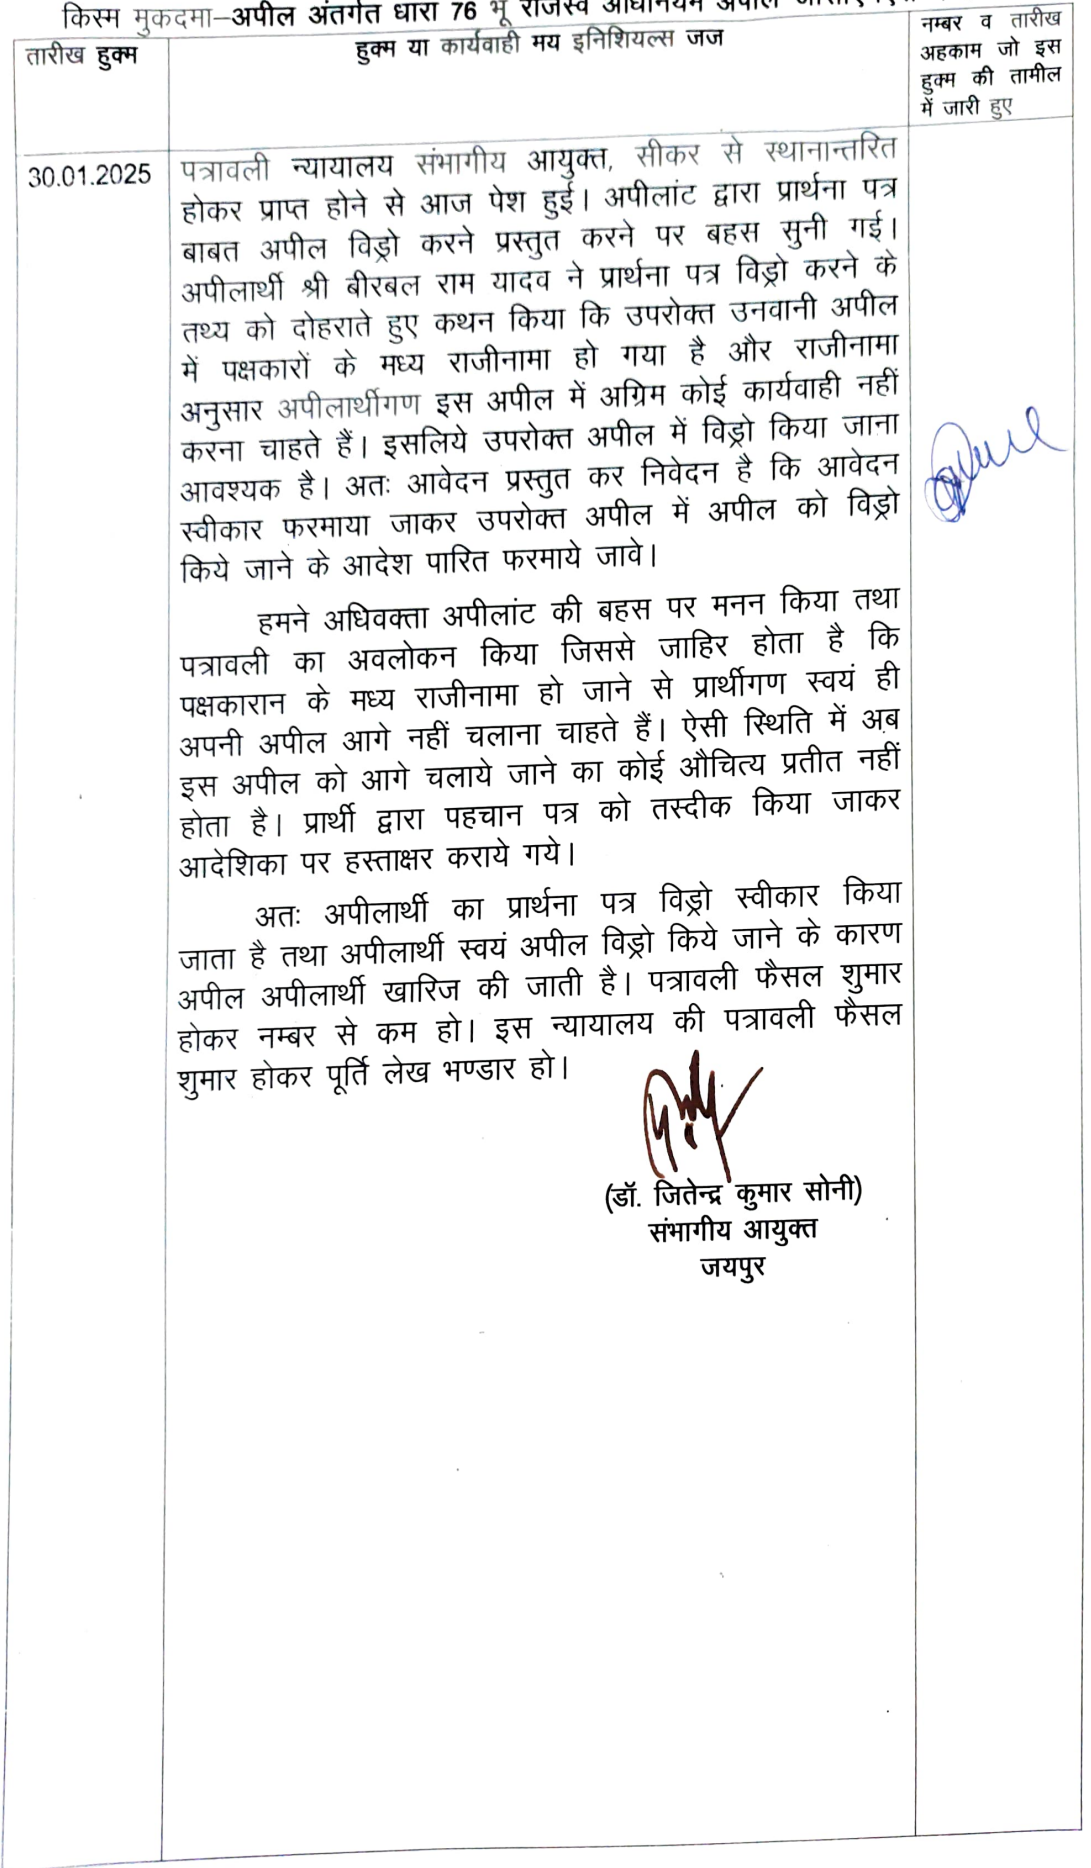 किस्म मुकदमा–अपील अंतर्गत धारा 76 भू राजस्व अधिनियम अपील
तारीख हुक्म
हुक्म या कार्यवाही मय इनिशियल्स जज
नम्बर व तारीख
अहकाम जो इस
हुक्म की तामील
में जारी हुए
30.01.2025
पत्रावली न्यायालय संभागीय आयुक्त, सीकर से स्थानान्तरित
होकर प्राप्त होने से आज पेश हुई। अपीलांट द्वारा प्रार्थना पत्र
बाबत अपील विड्रो करने प्रस्तुत करने पर बहस सुनी गई।
अपीलार्थी श्री बीरबल राम यादव ने प्रार्थना पत्र विड्रो करने के
तथ्य को दोहराते हुए कथन किया कि उपरोक्त उनवानी अपील
में पक्षकारों के मध्य राजीनामा हो गया है और राजीनामा
अनुसार अपीलार्थीगण इस अपील में अग्रिम कोई कार्यवाही नहीं
करना चाहते हैं। इसलिये उपरोक्त अपील में विड्रो किया जाना
आवश्यक है। अतः आवेदन प्रस्तुत कर निवेदन है कि आवेदन
स्वीकार फरमाया जाकर उपरोक्त अपील में अपील को विड्रो
किये जाने के आदेश पारित फरमाये जावे।
हमने अधिवक्ता अपीलांट की बहस पर मनन किया तथा
पत्रावली का अवलोकन किया जिससे जाहिर होता है कि
पक्षकारान के मध्य राजीनामा हो जाने से प्रार्थीगण स्वयं ही
अपनी अपील आगे नहीं चलाना चाहते हैं। ऐसी स्थिति में अब
इस अपील को आगे चलाये जाने का कोई औचित्य प्रतीत नहीं
होता है। प्रार्थी द्वारा पहचान पत्र को तस्दीक किया जाकर
आदेशिका पर हस्ताक्षर कराये गये।
अतः अपीलार्थी का प्रार्थना पत्र विड्रो स्वीकार किया
जाता है तथा अपीलार्थी स्वयं अपील विड्रो किये जाने के कारण
अपील अपीलार्थी खारिज की जाती है। पत्रावली फैसल शुमार
होकर नम्बर से कम हो। इस न्यायालय की पत्रावली फैसल
शुमार होकर पूर्ति लेख भण्डार हो।
(डॉ. जितेन्द्र कुमार सोनी)
संभागीय आयुक्त
जयपुर